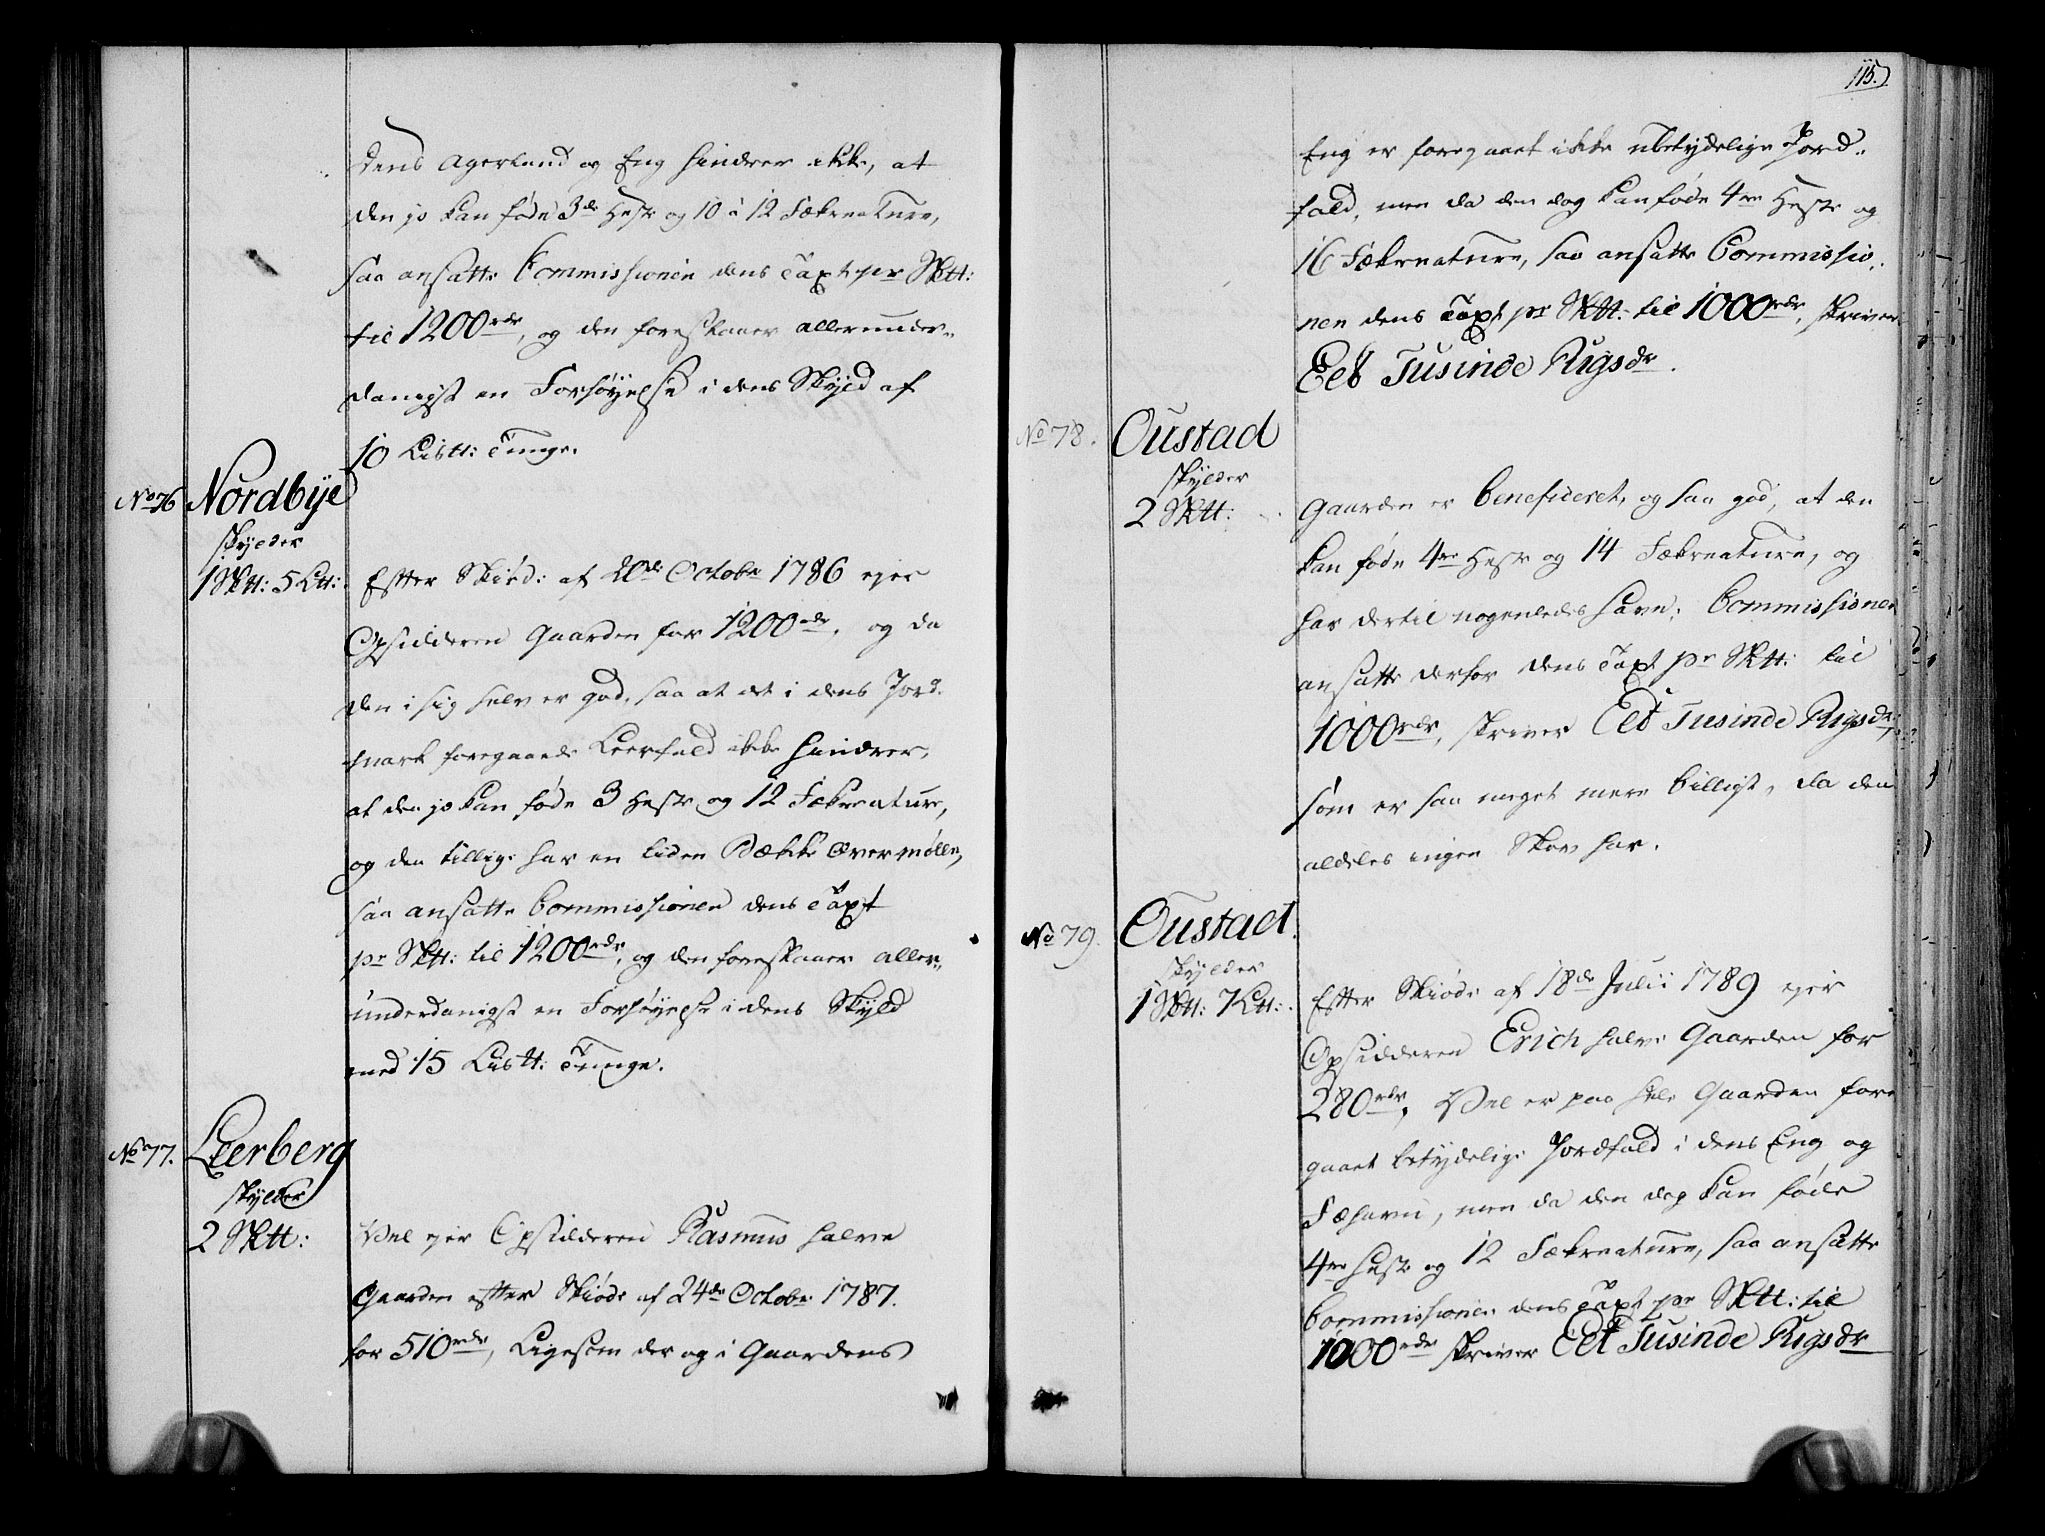 dens Agerland og Eng hindrer ikke, at
den jo kan føde 3de Heste og 10 à 12 Fækreature,
saa ansatte Commissionen dens Taxt pr Sktt:
til 1200rdr, og den foreslaaer allerunder-
danigst en Forhøyelse i dens Skyld af
10 Listt: Tunge.
No 76 Nordbye
skylder
1 Sktt: 5 Ltt:
Efter Skiøde af 20de Octobr 1786 ejer
Opsidderen Gaarden for 1200rdr, og da
den i sig selv er god, saa at det i dens Jord-
smark foregaaede Leerfald ikke hindrer,
at den jo kan føde 3 Heste og 12 Fækreature,
og den tillige har en liden Bække Qvernmølle,
saa ansatte Commissionen dens Taxt
pr Sktt: til 1200rdr, og den foreslaaer aller-
underdanigst en Forhøyelse i dens Skyld
med 15 Listt: Tunge.
No 77. Leerberg
skylder
2 Sktt:
Vel ejer Opsidderen Rasmus halve
Gaarden efter Skiøde af 24de Octobr 1787.
for 510rdr, Ligesom der og i Gaardens
115.)
Eng er foregaaet ikke ubetydelige Jord-
fald, men da den dog kan føde 4re Heste og
16 Fækreature, saa ansatte Commissio-
nen dens Taxt pr Sktt: til 1000rdr, skriver
Eet Tusinde Rigsdr.
No 78. Oustad
skylder
2 Sktt:
Gaarden er beneficeret, og saa god, at den
kan føde 4re Heste og 14 Fækreature, og
har dertil nogenledes Havn; Commissionen
ansatte derfor dens Taxt pr Sktt: til
1000rdr, skriver Eet Tusinde Rigsdr,
som er saa meget mere billigt, da den
aldeles ingen Skov har.
No 79. Oustad.
skylder
1 Sktt: 7 Ltt:
Efter Skiøde af 18de Julii 1789 ejer
Opsidderen Erich halve Gaarden for
280rdr, Vel er paa hele Gaarden fore
gaaet betydelige Jordfald i dens Eng og
Fæhavn, men da den dog kan føde
4re Heste og 12 Fækreature, saa ansatte
Commissionen dens Taxt pr Sktt: til
1000rdr skriver Eet Tusinde Rigsdr